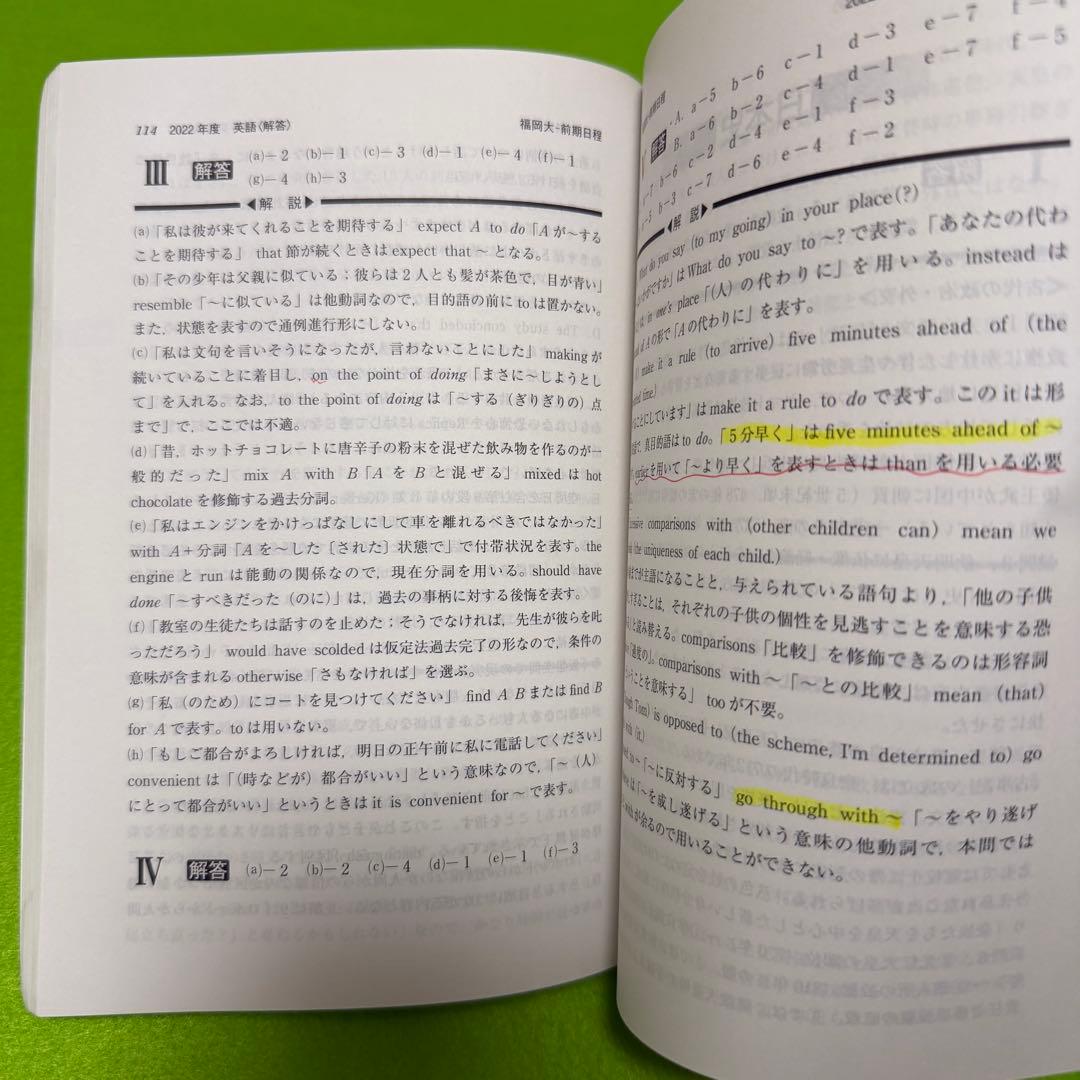 114 2022年度 英語〈解答〉 福岡大-前期日程
Ⅲ 解答 (a)―2 (b)―1 (c)―3 (d)―1 (e)―4 (f)―1
(g)―4 (h)―3
◀解 説▶
(a)「私は彼が来てくれることを期待する」 expect A to do「Aが～する
ことを期待する」 that 節が続くときは expect that ～となる。
(b)「その少年は父親に似ている；彼らは2人とも髪が茶色で，目が青い」
resemble「～に似ている」は他動詞なので，目的語の前に to は置かない。
また，状態を表すので通例進行形にしない。
(c)「私は文句を言いそうになったが，言わないことにした」 making が
続いていることに着目し，on the point of doing「まさに～しようとし
て」を入れる。なお，to the point of doing は「～する（ぎりぎりの）点
まで」で，ここでは不適。
(d)「昔，ホットチョコレートに唐辛子の粉末を混ぜた飲み物を作るのが一
般的だった」 mix A with B「AをBと混ぜる」 mixed は hot
chocolate を修飾する過去分詞。
(e)「私はエンジンをかけっぱなしにして車を離れるべきではなかった」
with A＋分詞「Aを～した〔された〕状態で」で付帯状況を表す。the
engine と run は能動の関係なので，現在分詞を用いる。should have
done「～すべきだった（のに）」は，過去の事柄に対する後悔を表す。
(f)「教室の生徒たちは話すのを止めた；そうでなければ，先生が彼らを叱
っただろう」 would have scolded は仮定法過去完了の形なので，条件の
意味が含まれる otherwise「さもなければ」を選ぶ。
(g)「私（のため）にコートを見つけてください」 find A B または find B
for A で表す。to は用いない。
(h)「もしご都合がよろしければ，明日の正午前に私に電話してください」
convenient は「（時などが）都合がいい」という意味なので，「～（人）
にとって都合がいい」というときは it is convenient for ～で表す。
Ⅳ 解答 (a)―2 (b)―2 (c)―4 (d)―1 (e)―1 (f)―3
解答 A. a―5 b―6 c―1 d―3 e―7 f―4
B. a―6 b―2 c―4 d―1 e―7 f―5
b―6 c―2 d―4 e―1 f―3
b―3 c―7 d―6 e―4 f―2
◀解 説▶
What do you say (to my going) in your place(?)
は What do you say to ～? で表す。「あなたの代わ
in one's place「（人）の代わりに」を用いる。instead は
of A の形で「Aの代わりに」を表す。
make it a rule (to arrive) five minutes ahead of (the
time.)
ことにしています」は make it a rule to do で表す。この it は形
真目的語は to do。「5分早く」は five minutes ahead of ～
を用いて「～より早く」を表すときは than を用いる必要
comparisons with (other children can) mean we
the uniqueness of each child.)
までが主語になることと，与えられている語句より，「他の子供
すぎることは，それぞれの子供の個性を見逃すことを意味する恐
と読み替える。comparisons「比較」を修飾できるのは形容詞
「過度の」。comparisons with ～「～との比較」 mean (that)
ということを意味する」 too が不要。
Tom) is opposed to (the scheme, I'm determined to) go
(it.)
to ～「～に反対する」 go through with ～「～をやり遂げ
は「～を成し遂げる」という意味の他動詞で，本問では
with が余るので用いることができない。